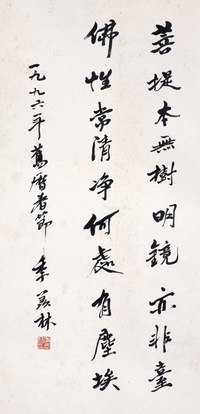 菩提本無樹明鏡亦非臺
佛性常清净何處有塵埃
一九九六年舊曆春節 季羨林